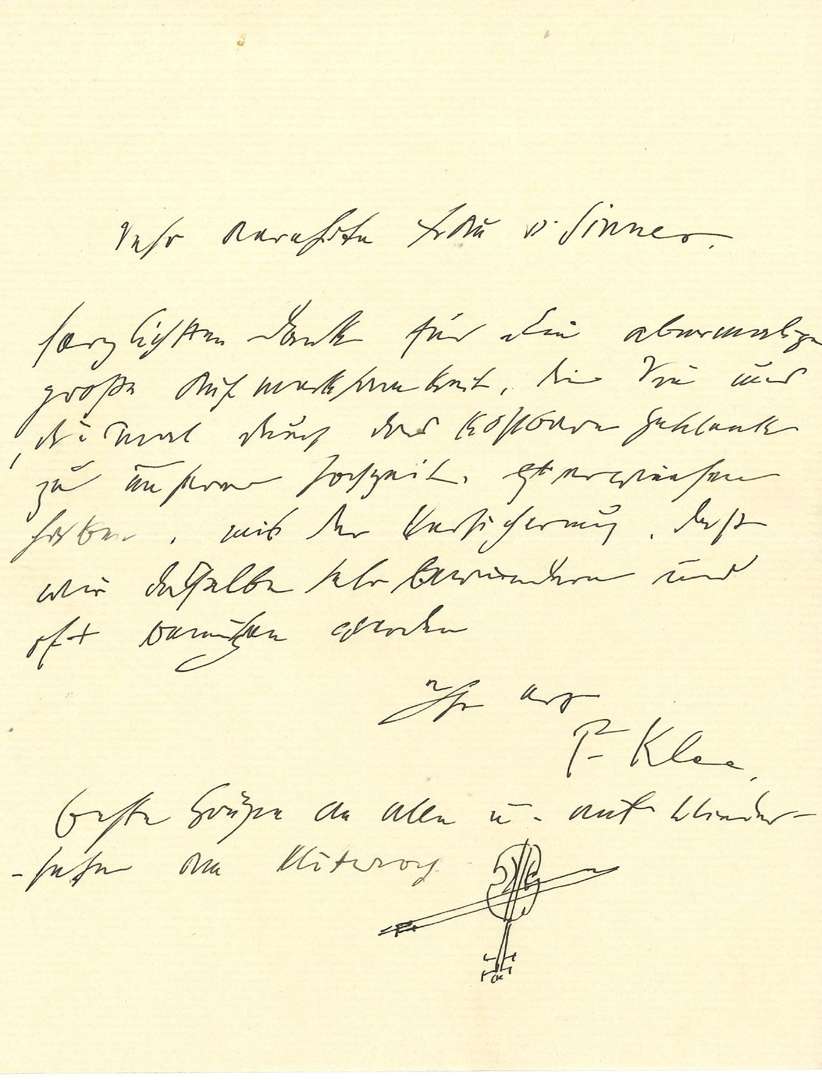 Sehr verehrte Frau v. Sinner.
herzlichsten Dank für die abermalige
große Aufmerksamkeit, die Sie uns
, diesmal durch das kostbare Geschenk
zu unserer Hochzeit, erwiesen
haben, mit der Versicherung, daß
wir dasselbe sehr bewundern und
oft benützen werden
Ihr erg
P. Klee.
beste Grüße an alle u. auf Wieder-
-sehen am Mittwoch